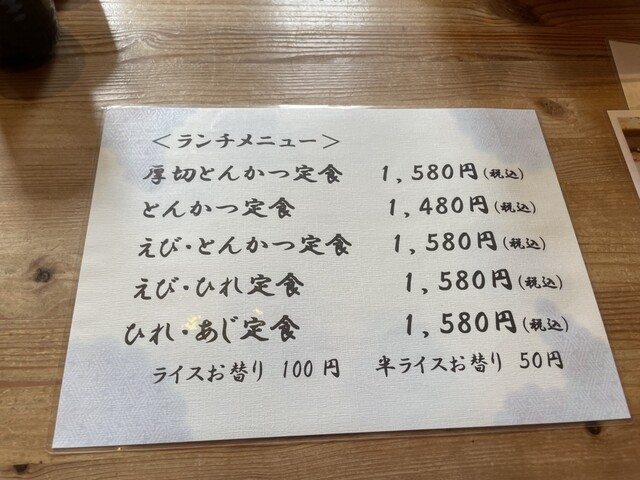 ＜ランチメニュー＞
厚切とんかつ定食 1,580円(税込)
とんかつ定食 1,480円(税込)
えび・とんかつ定食 1,580円(税込)
えび・ひれ定食 1,580円(税込)
ひれ・あじ定食 1,580円(税込)
ライスお替り 100円 半ライスお替り 50円